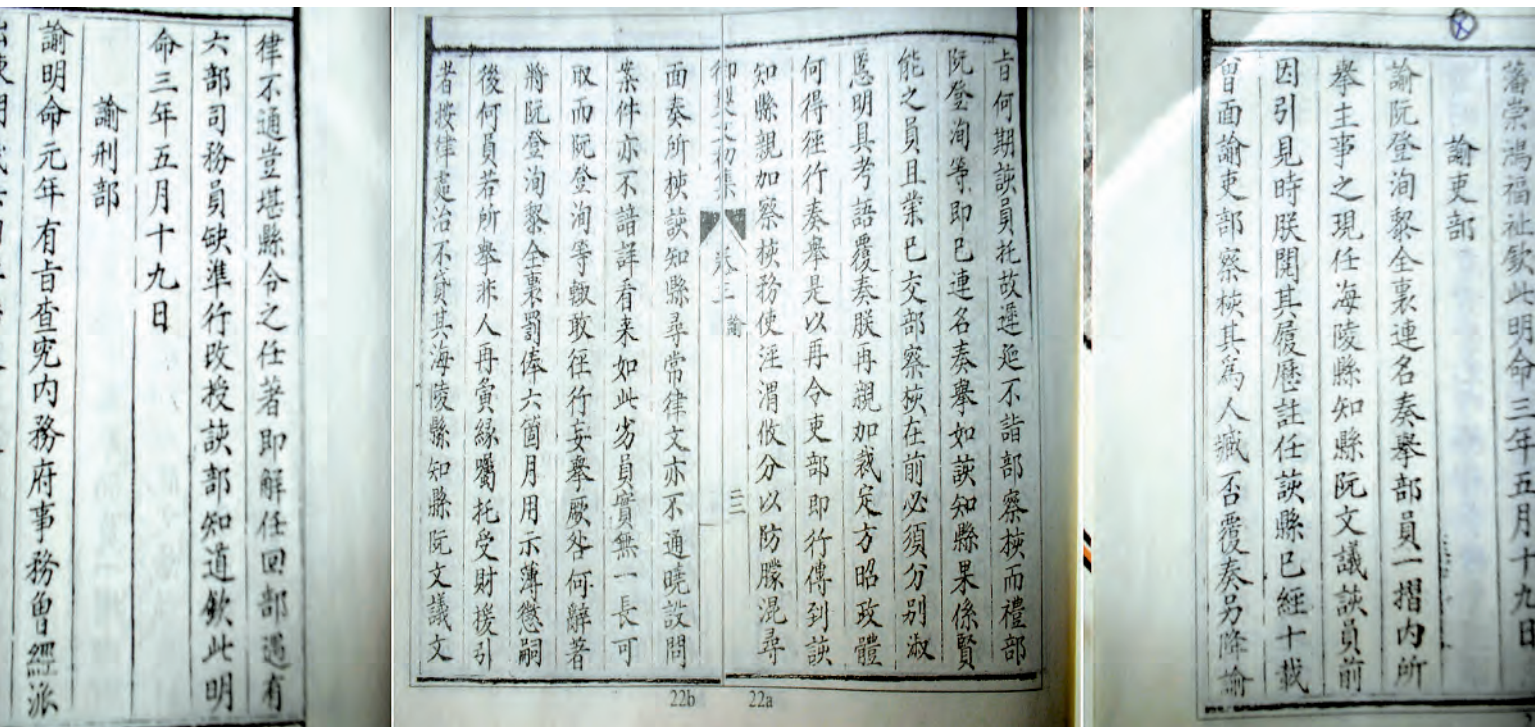 藩崇鴻福祉欽此明命三年五月十九日
諭吏部
諭阮登洵黎全裏連名奏舉部員一摺內所
舉主事之現任海陵縣知縣阮文議該員前
因引見時朕閱其履歷註任該縣已經十載
曾面諭吏部察核其為人臧否覆奏另降諭
旨何期該員托故遲延不詣部察核而禮部
阮登洵等即已連名奏舉如該知縣果係賢
能之員且業已交部察核在前必須分別淑
慝明具考語覆奏朕再親加裁定方昭政體
何得徑行奏舉是以再令吏部即行傳到該
知縣親加察核務使涇渭攸分以防朦混尋
御製文初集 卷三 諭 三
面奏所核該知縣尋常律文亦不通曉設問
案件亦不諳詳看来如此劣員實無一長可
取而阮登洵等輒敢徑行妄舉厥咎何辭著
將阮登洵黎全裏罰俸六箇月用示薄懲嗣
後何員若所舉非人再夤緣囑托受財援引
者按律處治不貸其海陵縣知縣阮文議文
律不通豈堪縣令之任著即解任回部遇有
六部司務員缺準行改授該部知道欽此明
命三年五月十九日
諭刑部
諭明命元年有旨查究內務府事務曾經派
22b
22a